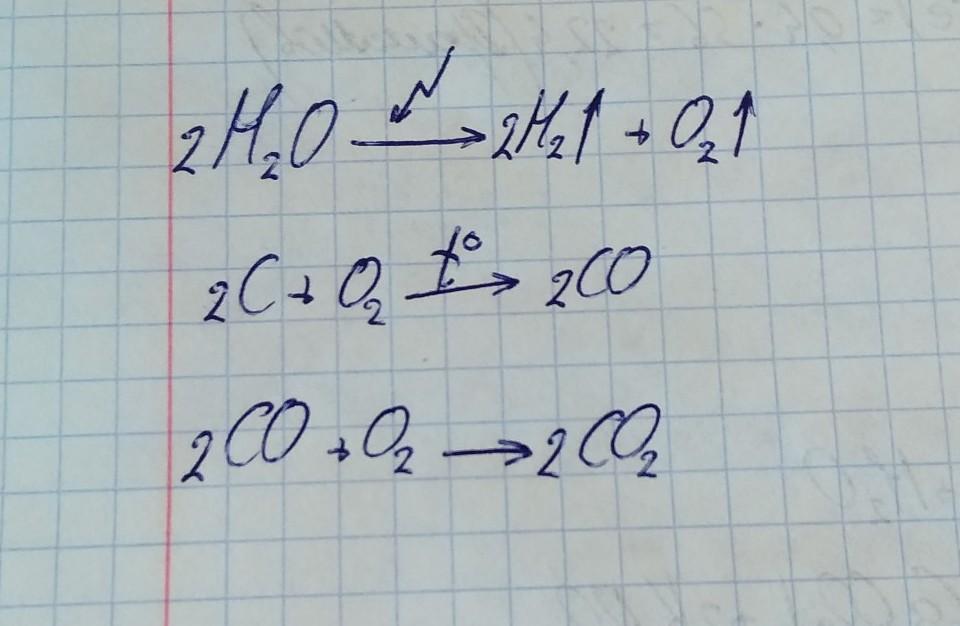 2H₂O → 2H₂↑ + O₂↑
2C + O₂ t° → 2CO
2CO + O₂ → 2CO₂